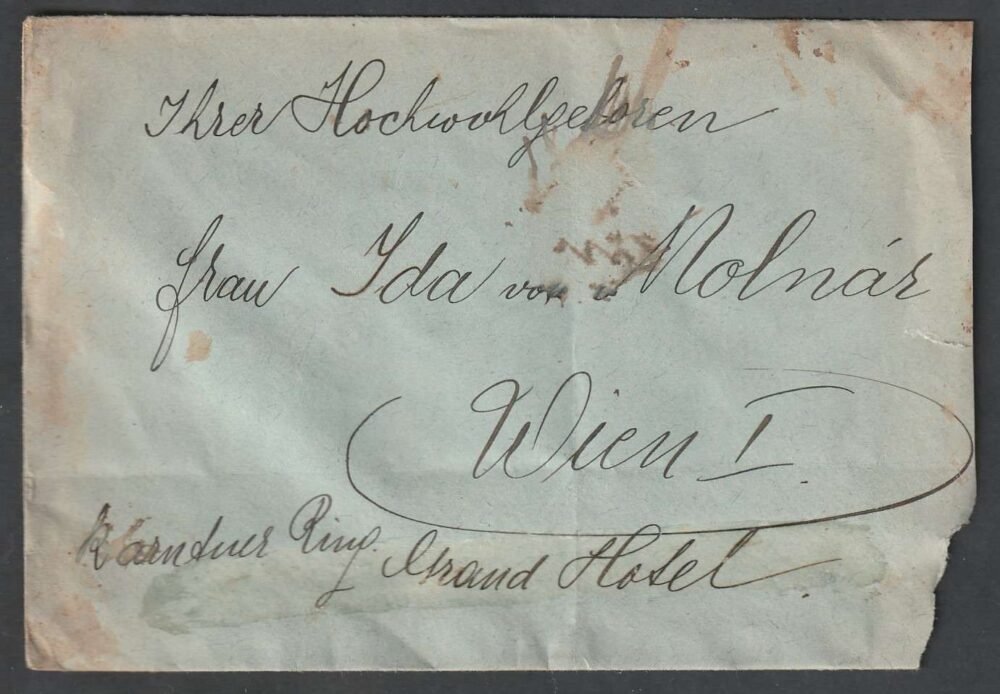 Ihrer Hochwohlgeboren
Frau Ida von Molnár
Wien I
Kärntner Ring. Grand Hotel